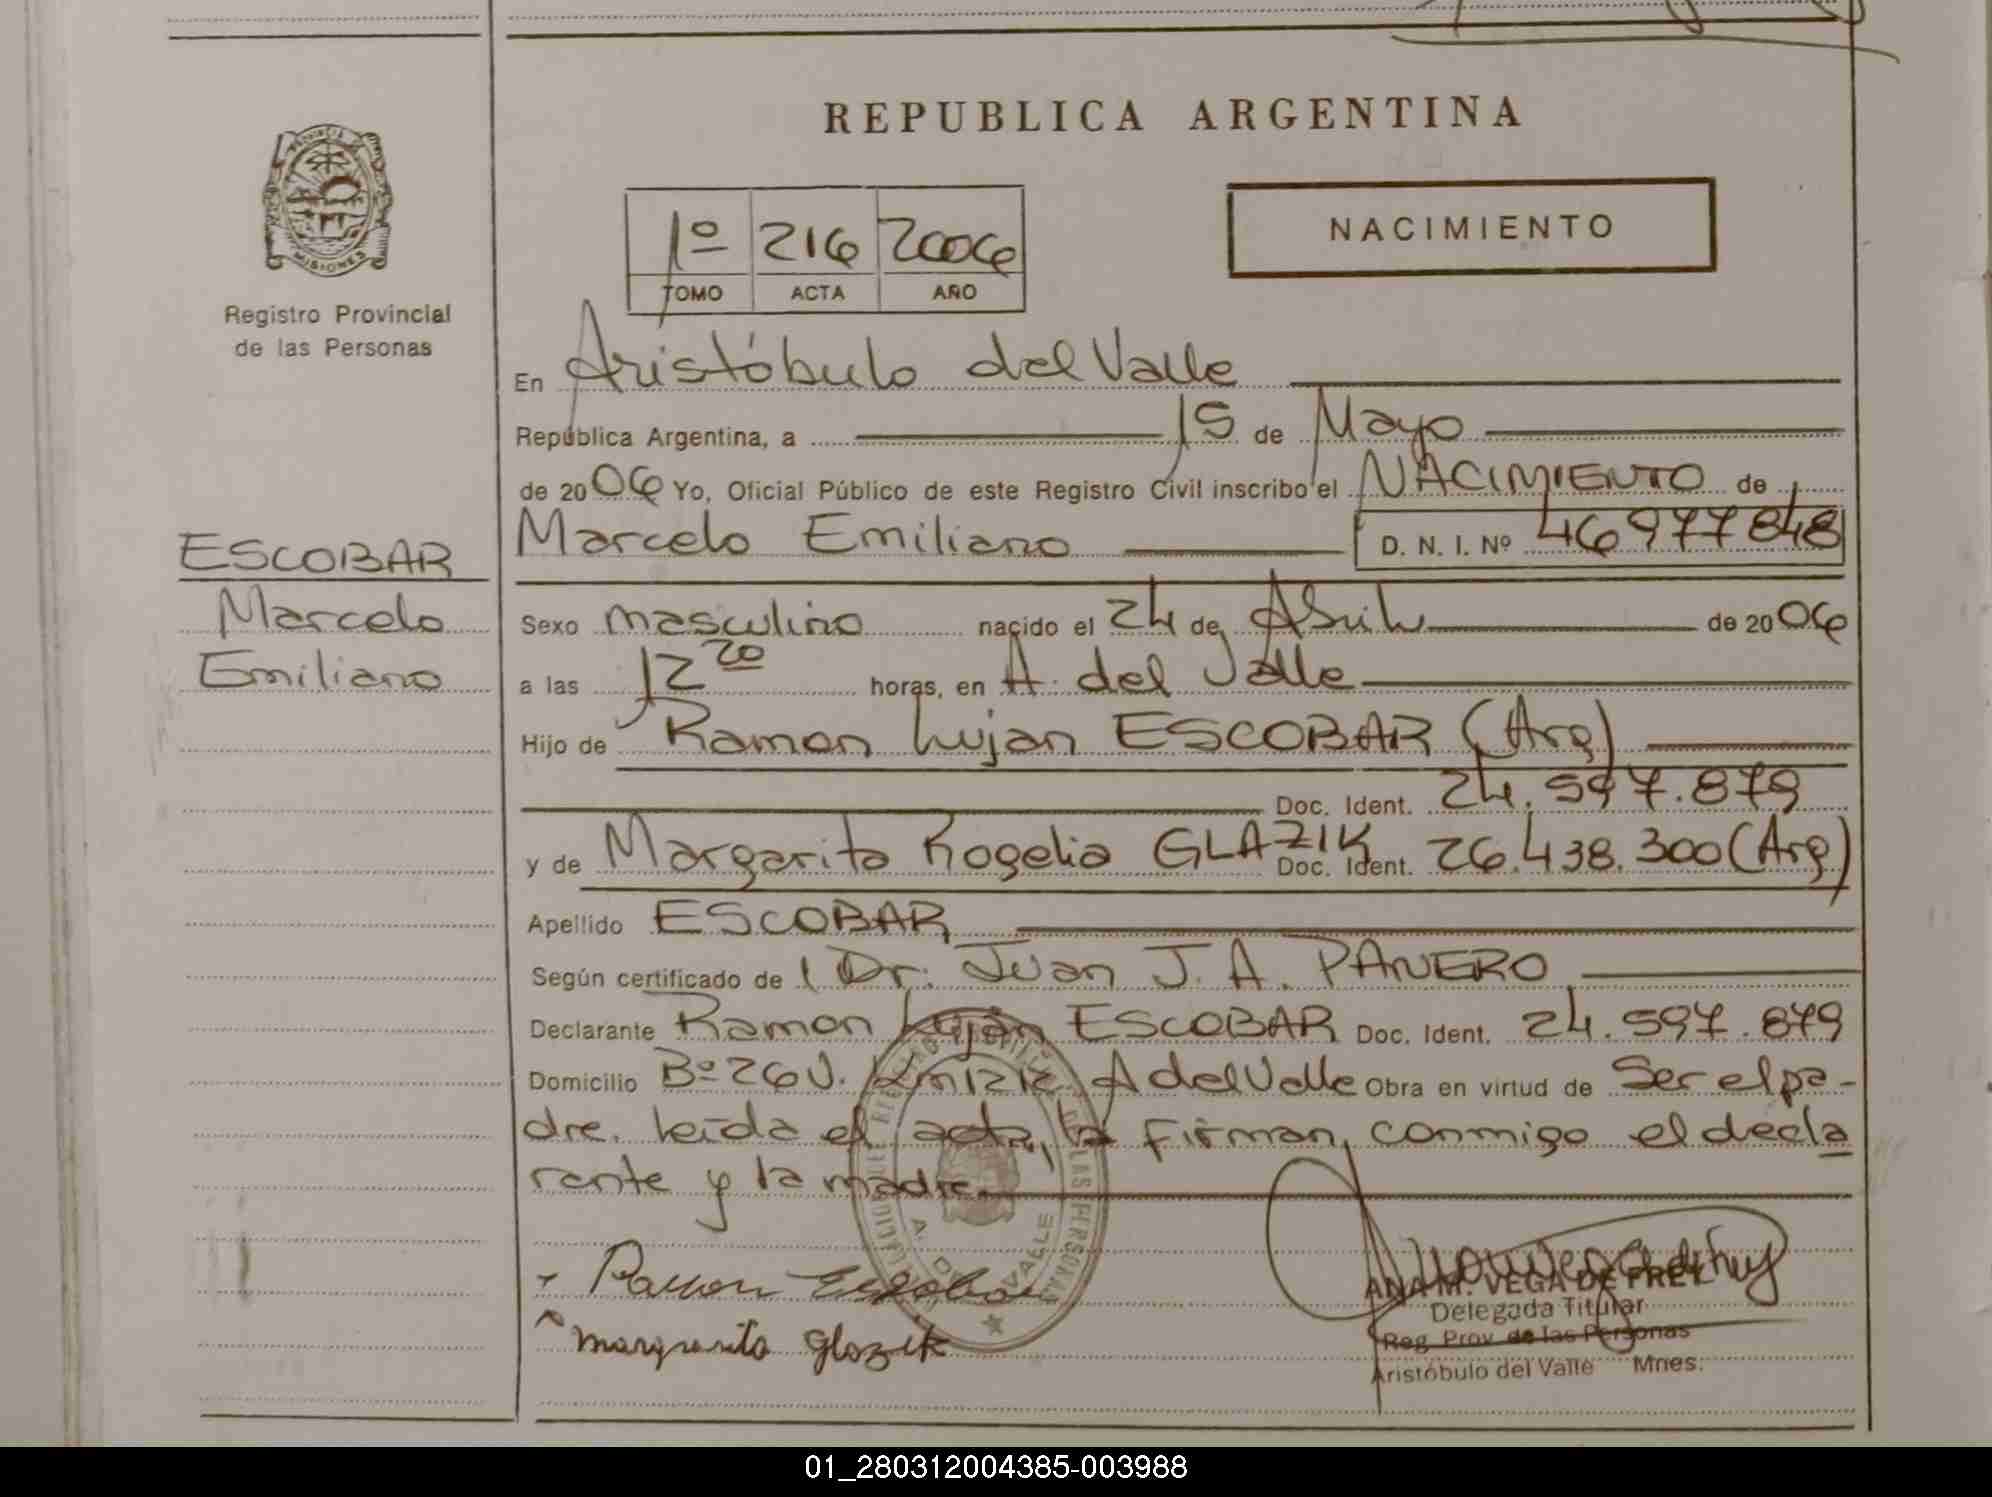 REPUBLICA ARGENTINA
PROVINCIA
MISIONES
Registro Provincial
de las Personas
1º 216 2006
TOMO ACTA AÑO
NACIMIENTO
En Aristóbulo del Valle
República Argentina, a 15 de Mayo
de 2006 Yo, Oficial Público de este Registro Civil inscribo el NACIMIENTO de
Marcelo Emiliano D. N. I. Nº 46977848
ESCOBAR
Marcelo
Emiliano
Sexo masculino nacido el 24 de Abril de 2006
a las 12 20 horas, en A. del Valle
Hijo de Ramon Lujan ESCOBAR (Arg)
Doc. Ident. 24.597.879
y de Margarita Rogelia GLAZIK Doc. Ident. 26.438.300 (Arg)
Apellido ESCOBAR
Según certificado de Dr. Juan J. A. PANERO
Declarante Ramon Luján ESCOBAR Doc. Ident. 24.597.879
Domicilio Bº 26 V. A del Valle Obra en virtud de Ser el pa-
dre. leída el acta, la firman, conmigo el decla
rante y la madre.
Ramon Escobar
margarita glazik
DE LAS PERSONAS
A. DEL VALLE
ANA M. VEGA DE FREY
Delegada Titular
Reg. Prov. de las Personas
Aristóbulo del Valle Mnes.
01_280312004385-003988